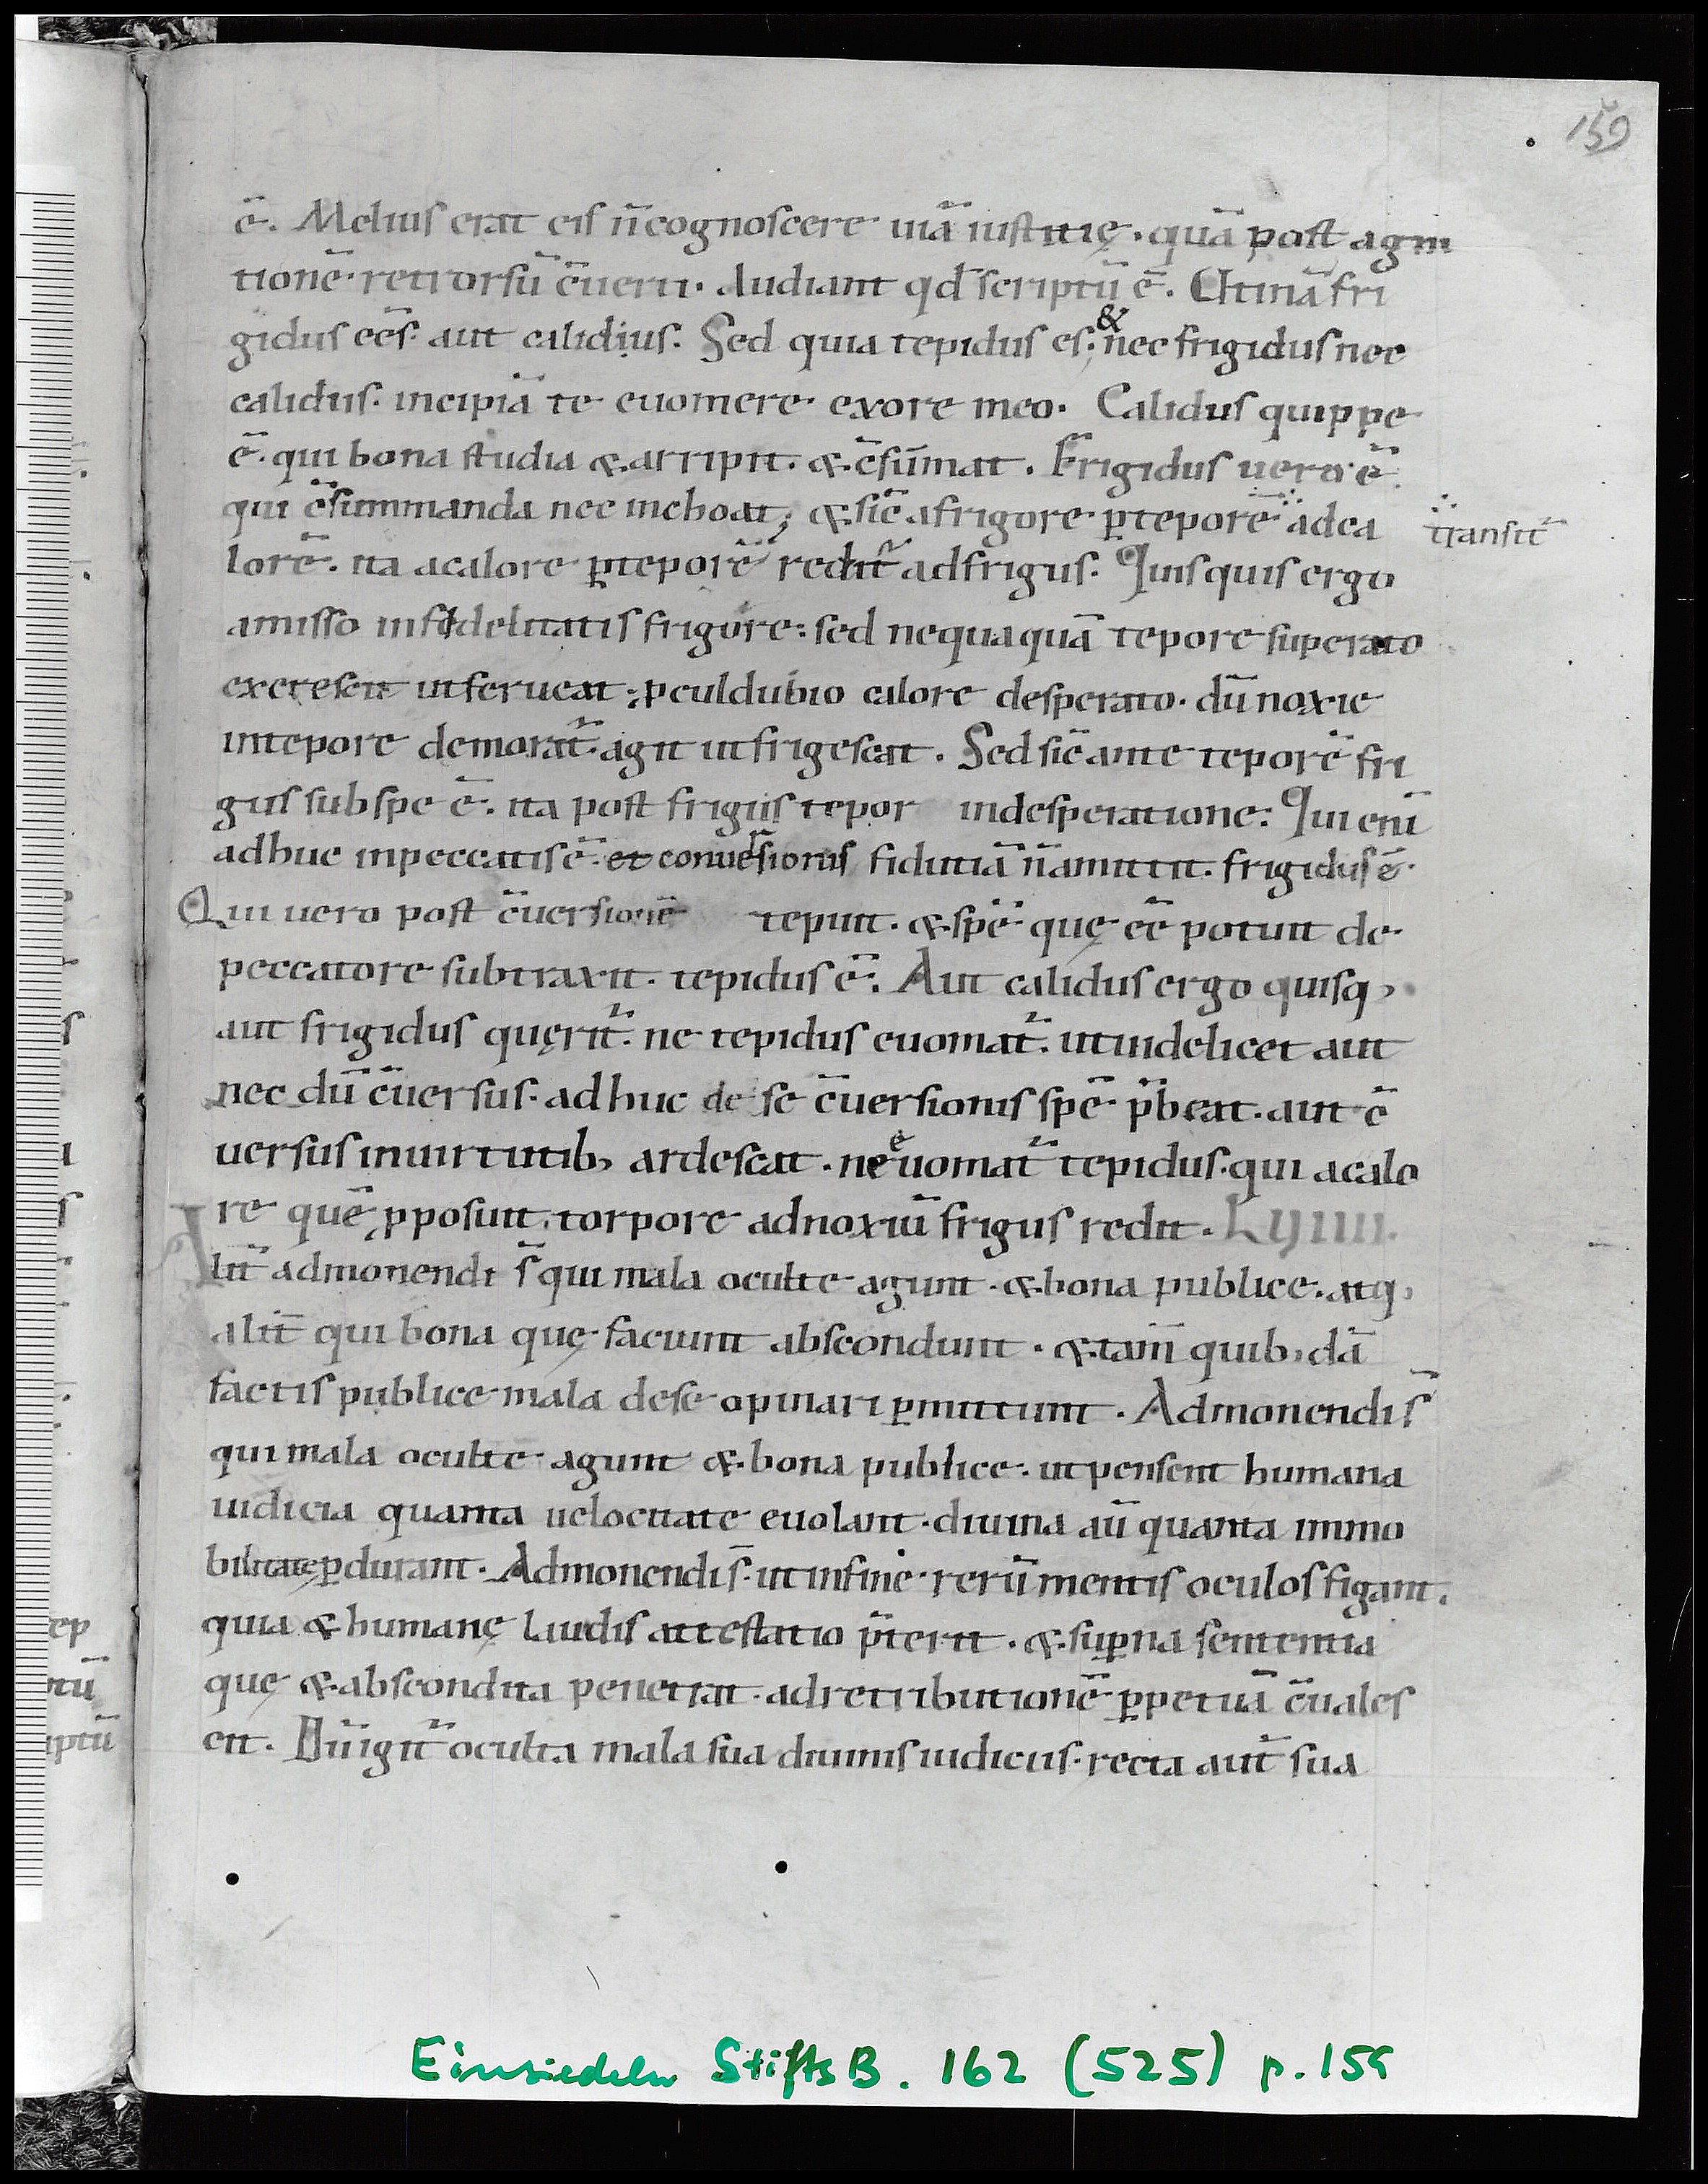 159
ē. Melius erat eis n̄ cognoscere uiā iustitię. quā post agni
tionē retrorsū c̄uerti. Audiant qđ scriptū ē. Utinā fri
gidus eēs aut calidius. Sed quia tepidus es; & nec frigidus nec
calidus. incipiā te euomere exore meo. Calidus quippe
ē. qui bona studia & arripit. & c̄sūmat. Frigidus uero ē
qui c̄summanda nec inchoat; & sic̄ afrigore ꝑteporē adca
transit᷑
lorē. ita acalore ꝑteporē redit᷑ adfrigus. Quisquis ergo
amisso infidelitatis frigore: sed nequaquā tepore superato
excrescit utferueat; ꝓculdubio calore desperato. dū noxie
intepore demorat᷑. agit utfrigescat. Sed sic̄ ante teporē fri
gus subspe ē. ita post frigus tepor indesperatione: Qui eni̅
adhuc inpeccatis ē. et conuersionis fidutiā n̄ amittit. frigidus ē.
Qui uero post c̄uersionē tepuit. & spē quę eē potuit de
peccatore subtraxit. tepidus ē. Aut calidus ergo quisq;
aut frigidus quęrit᷑. ne tepidus euomat᷑. ut uidelicet aut
nec dū c̄uersus. adhuc de se c̄uersionis spē p̄beat. aut c̄
uersus inuirtutib; ardescat. ne euomat᷑ tepidus. qui acalo
re quē ꝓposuit. torpore adnoxiū frigus redit. LVIIII.
Alit̄ admonendi s̄ qui mala oculte agunt. & bona publice. atq;
alit̄ qui bona quę faciunt abscondunt. & tam̄ quib;dā
factis publice mala dese opinari ꝑmittunt. Admonendi s̄
qui mala oculte agunt & bona publice. ut pensent humana
iudicia quanta uelocitate euolant. diuina aū quanta immo
bilitate ꝑdurant. Admonendi s̄. ut infine rerū mentis oculos figant.
quia & humanę laudis attestatio p̄terit. & suꝑna sententia
quę & abscondita penetrat. adretributionē ꝑpetuā c̄uales
cit. Dū igit᷑ oculta mala sua diuinis iudiciis. recta aut̄ sua
Einsiedeln StiftsB. 162 (525) p. 159